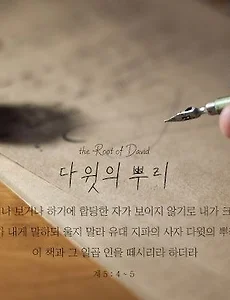 the Root of David
다윗의 뿌리
나 보거나 하기에 합당한 자가 보이지 않기로 내가 크
내게 말하되 울지 말라 유대 지파의 사자 다윗의 뿌
이 책과 그 일곱 인을 떼시리라 하더라
계 5 : 4 ~ 5